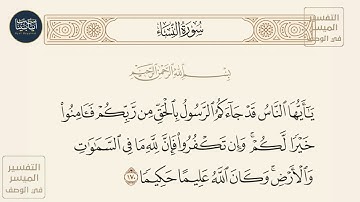 سُورَةُ النِّسَاءِ
التفسير
الميسر
في الوصف
بِسْمِ اللَّهِ الرَّحْمَٰنِ الرَّحِيمِ
يَٰٓأَيُّهَا ٱلنَّاسُ قَدْ جَآءَكُمُ ٱلرَّسُولُ بِٱلْحَقِّ مِن رَّبِّكُمْ فَـَٔامِنُوا۟
خَيْرًا لَّكُمْ ۚ وَإِن تَكْفُرُوا۟ فَإِنَّ لِلَّهِ مَا فِى ٱلسَّمَٰوَٰتِ
وَٱلْأَرْضِ ۚ وَكَانَ ٱللَّهُ عَلِيمًا حَكِيمًا ١٧٠
التفسير
الميسر
في الوصف